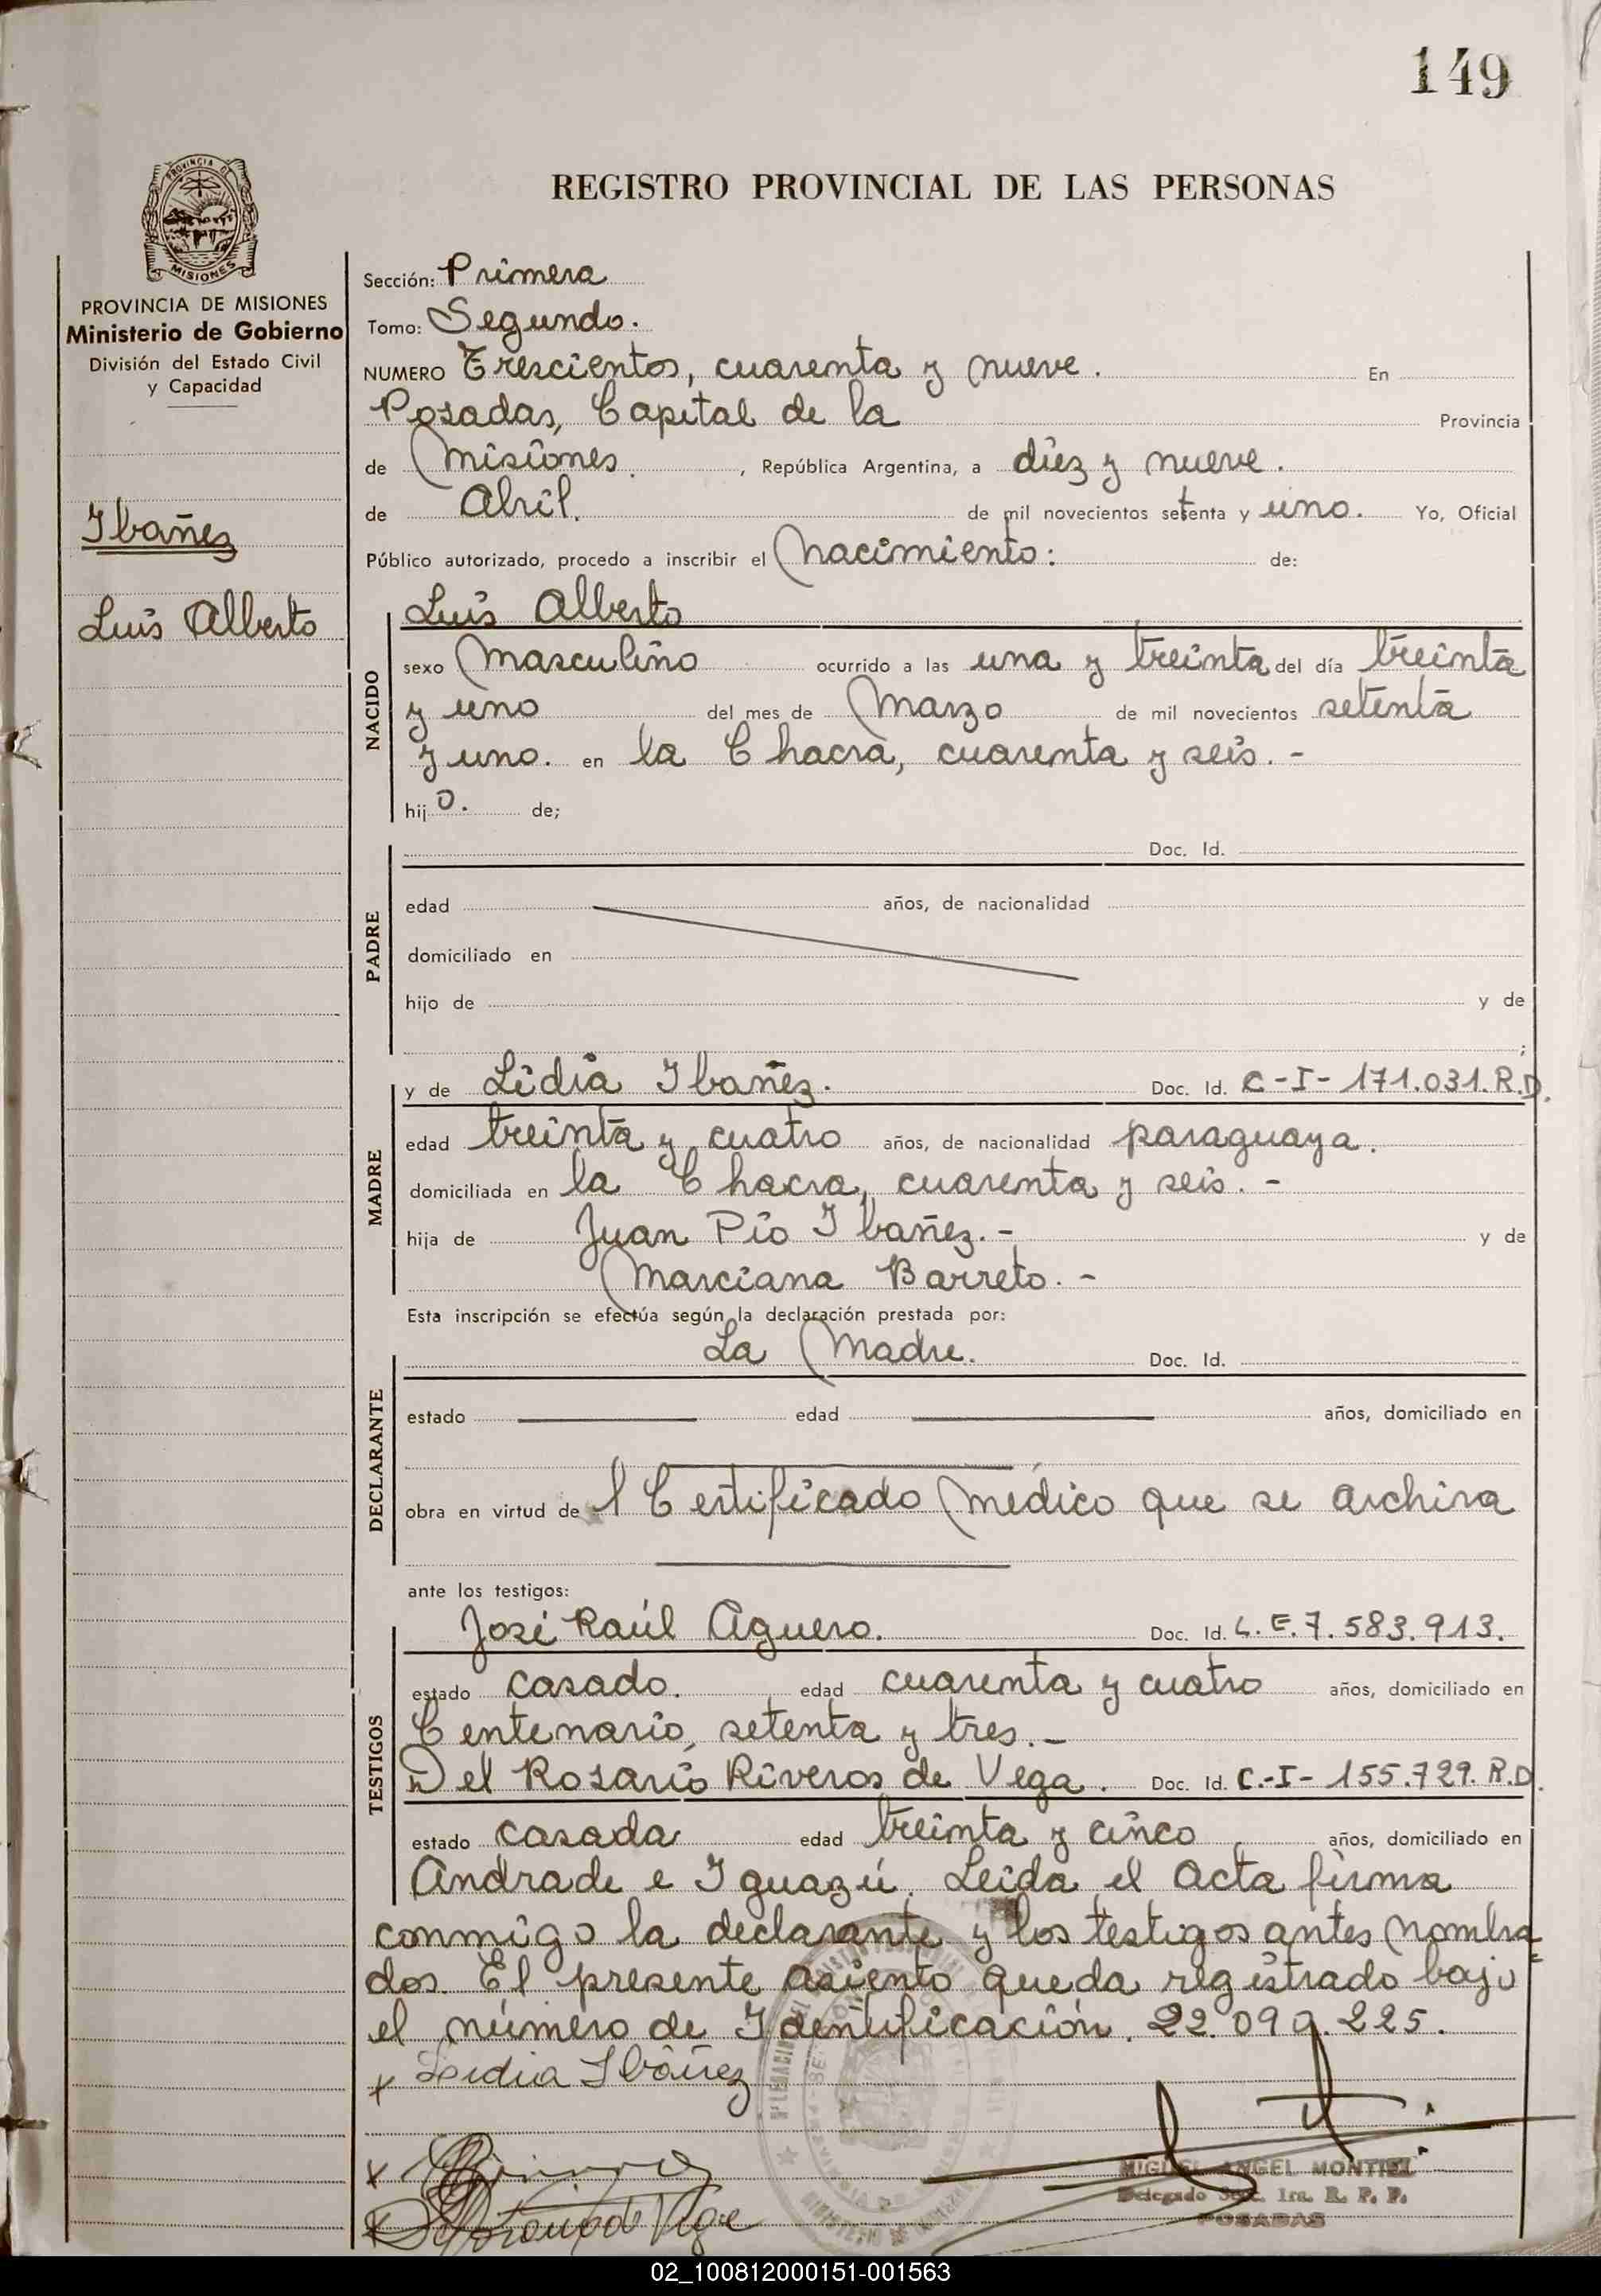 149
REGISTRO PROVINCIAL DE LAS PERSONAS
PROVINCIA DE
MISIONES
PROVINCIA DE MISIONES
Ministerio de Gobierno
División del Estado Civil
y Capacidad
Ibañez
Luis Alberto
Sección: Primera
Tomo: Segundo.
NUMERO Trescientos, cuarenta y nueve. En
Posadas, Capital de la Provincia
de Misiones. , República Argentina, a diez y nueve.
de Abril. de mil novecientos setenta y uno. Yo, Oficial
Público autorizado, procedo a inscribir el Nacimiento: de:
NACIDO
Luis Alberto
sexo Masculino ocurrido a las una y treinta del día treinta
y uno del mes de Marzo de mil novecientos setenta
y uno. en la Chacra, cuarenta y seis. -
hijo. de;
PADRE
Doc. Id.
edad años, de nacionalidad
domiciliado en
hijo de y de
;
MADRE
y de Lidia Ibañez. Doc. Id. C-I- 171.031.R.D.
edad treinta y cuatro años, de nacionalidad paraguaya.
domiciliada en la Chacra, cuarenta y seis. -
hija de Juan Pío Ibañez. - y de
Marciana Barreto. -
Esta inscripción se efectúa según la declaración prestada por:
DECLARANTE
La Madre. Doc. Id.
estado edad años, domiciliado en
obra en virtud del Certificado Médico que se archiva
ante los testigos:
TESTIGOS
José Raúl Aguero. Doc. Id. L.E.7.583.913.
estado casado. edad cuarenta y cuatro años, domiciliado en
Centenario, setenta y tres. -
Del Rosario Riveros de Vega. Doc. Id. C.-I- 155.729. R.D.
estado casada edad treinta y cinco años, domiciliado en
Andrade e Iguazú. Leida el Acta firma
conmigo la declarante y los testigos antes nombra-
dos. El presente asiento queda registrado bajo
el número de Identificación. 22.099.225.
x Lidia Ibáñez
x
x
MIGUEL ANGEL MONTIEL
Delegado Secc. 1ra. R. P. P.
POSADAS
02_100812000151-001563